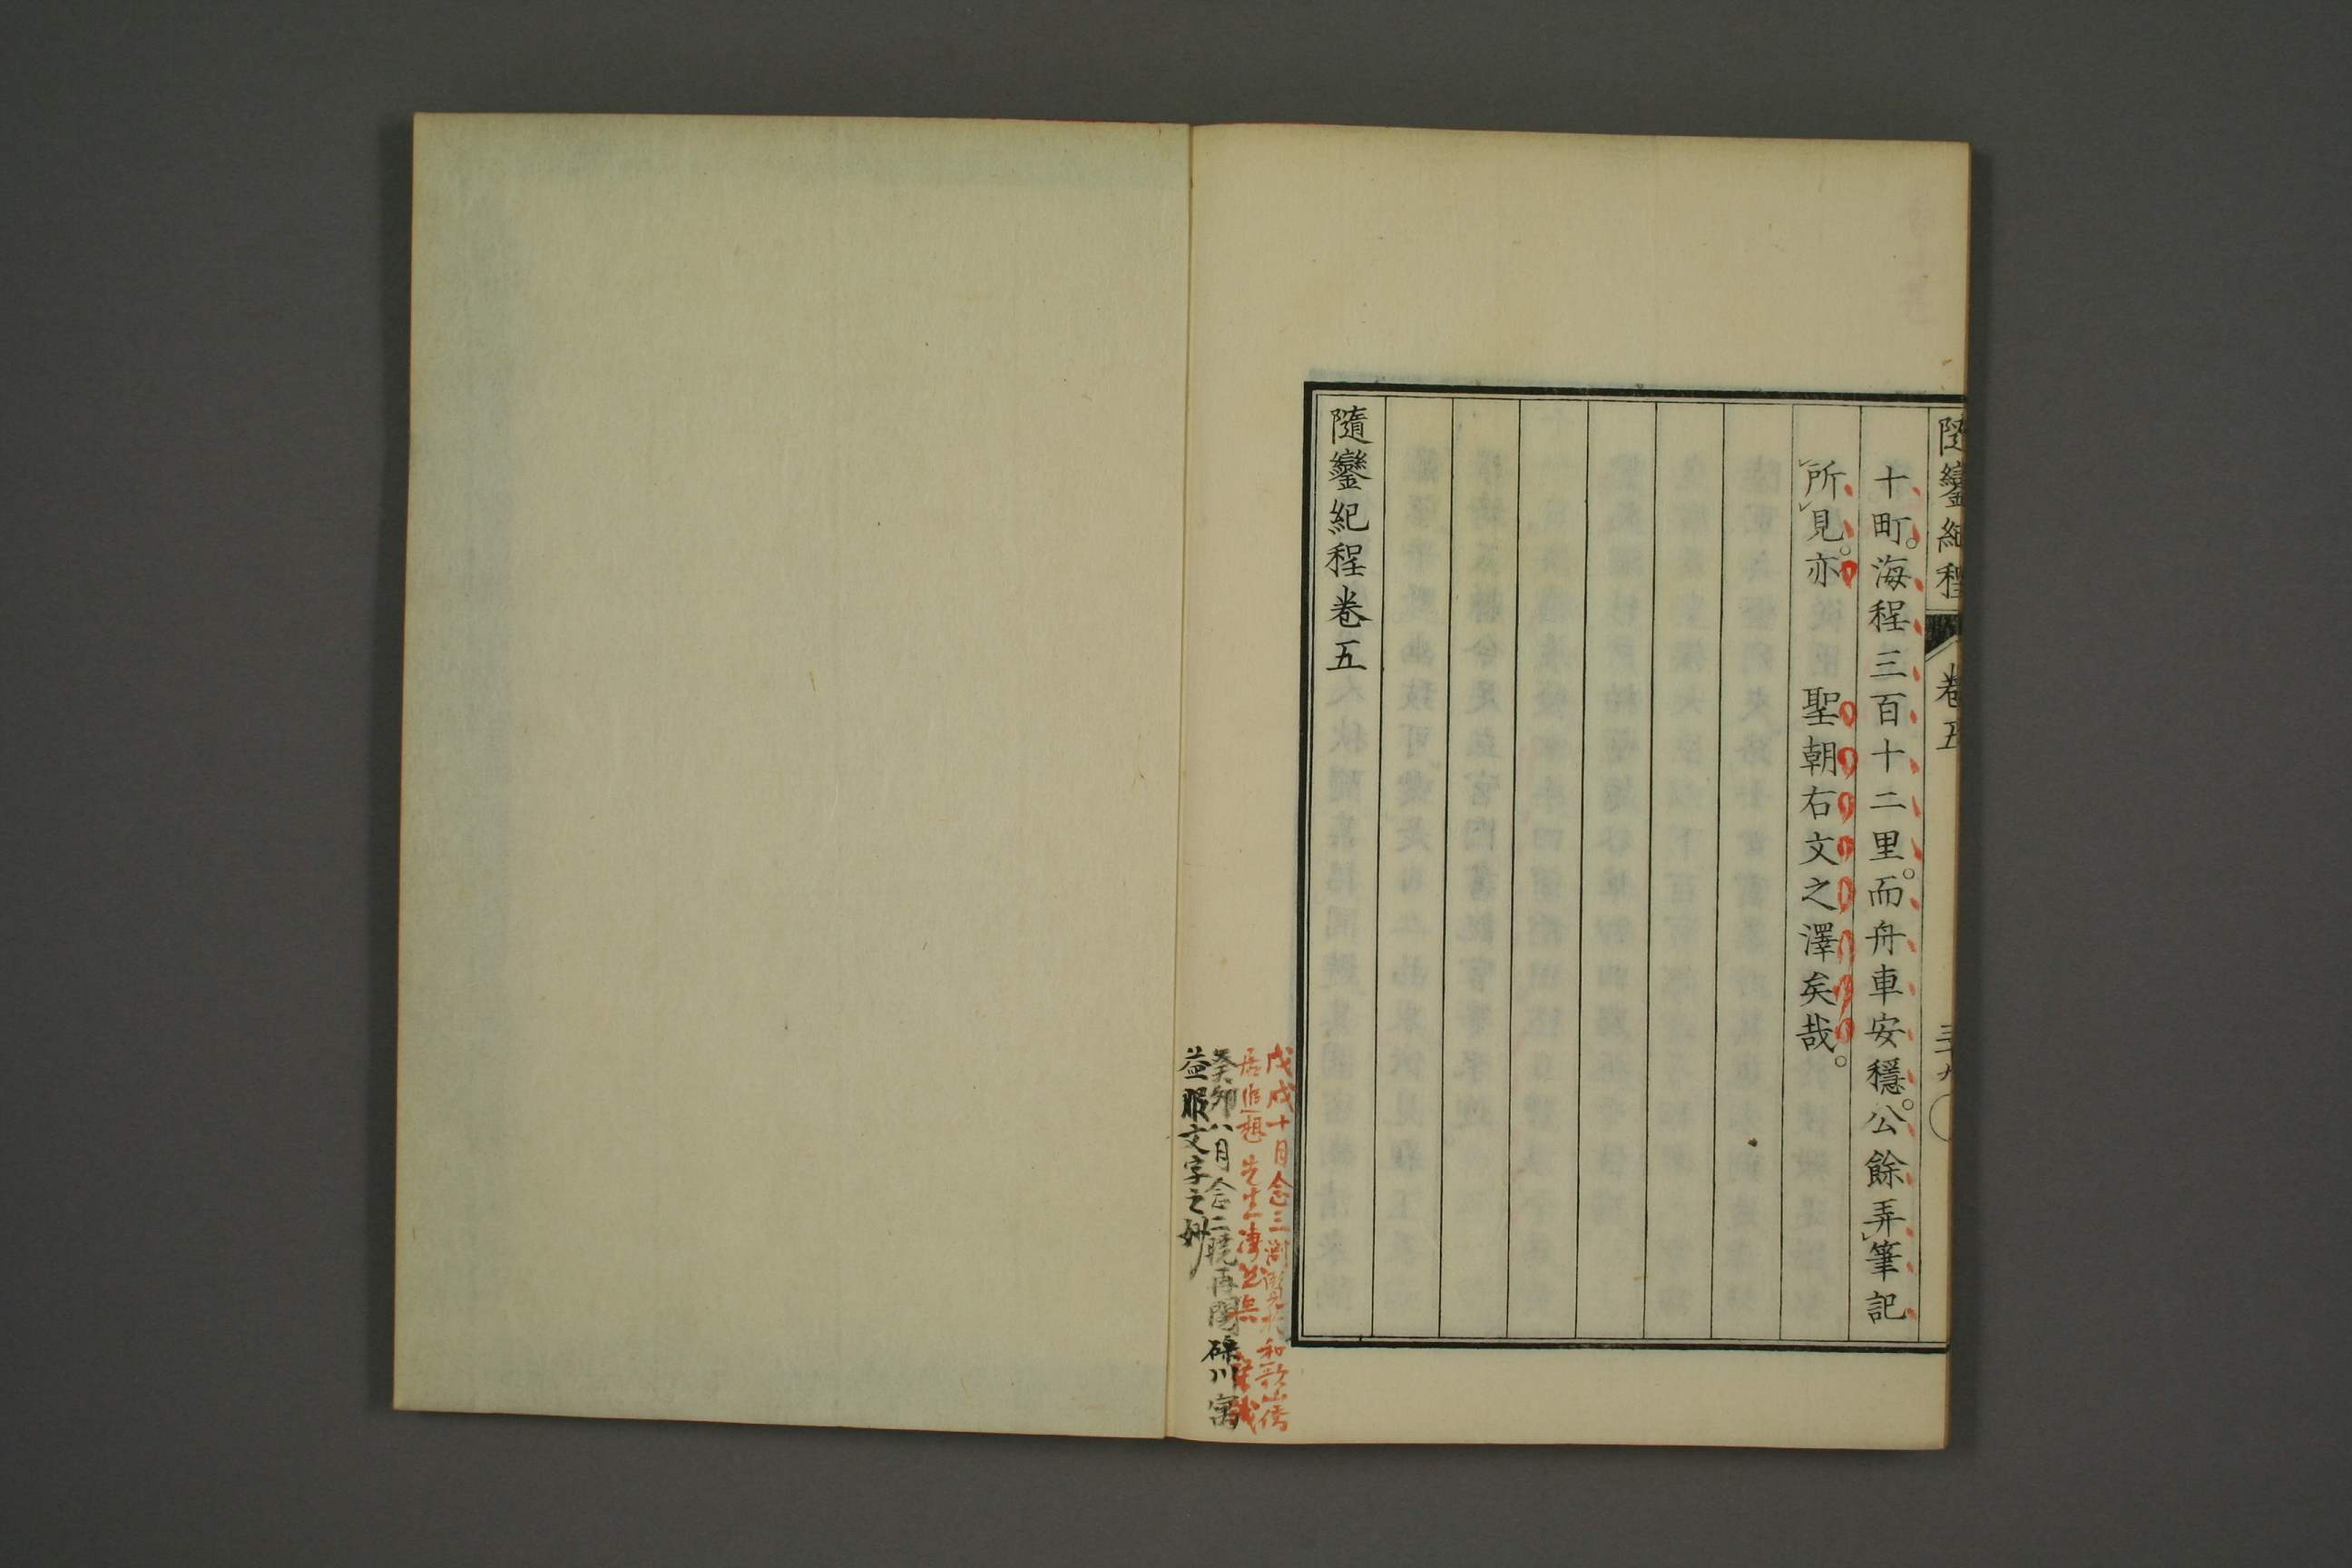 隨鑾紀程 卷五
十町。海程三百十二里。而舟車安穩。公餘弄筆記
所見。亦 聖朝右文之澤矣哉。
隨鑾紀程卷五
戊戌十月念三 和歌山僑
居追想 先生淒然
癸卯八月念二曉再閱 礫川寓
益服文字之妙